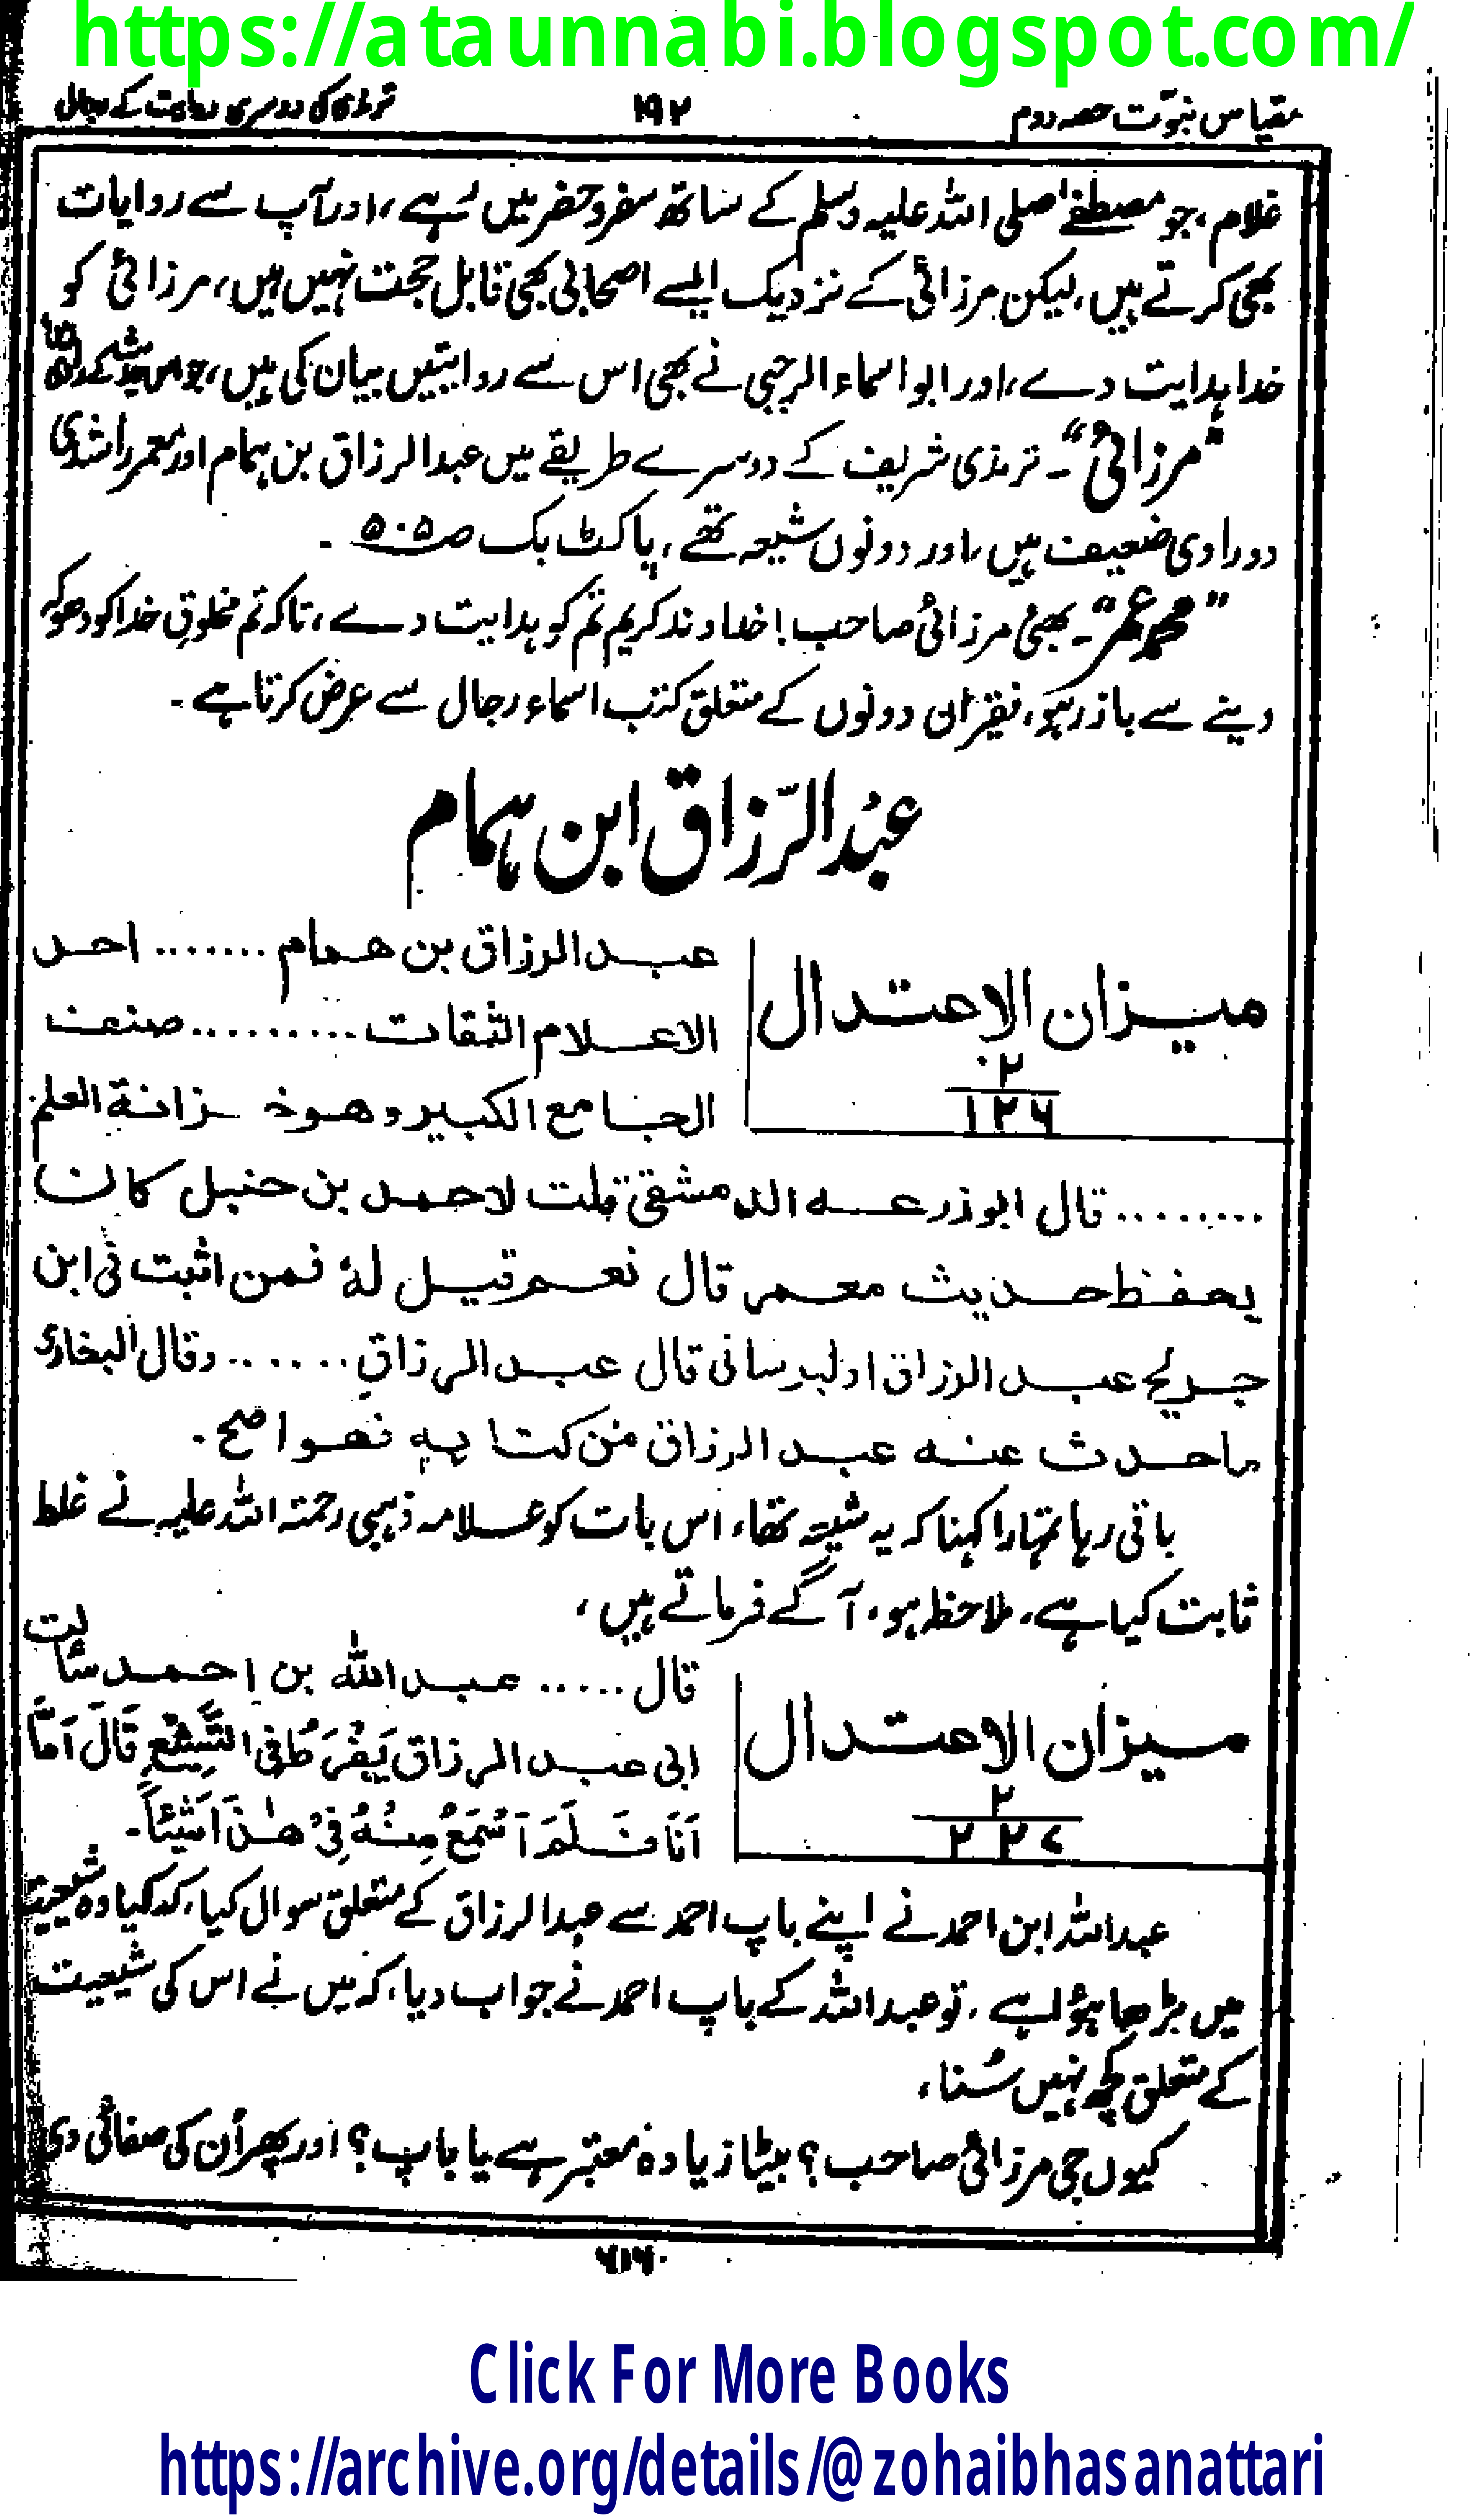 https://ataunnabi.blogspot.com/
مقیاس نبوّت حصہ دوم ۱۹۲ ترمذی کی دوسری روایت کے رجال
غلام، جو مصطفےٰ صلی اللہ علیہ وسلم کے ساتھ سفر و حضر میں رہے، اور آپ سے روایات
بھی کرتے ہیں، لیکن مرزائی کے نزدیک ایسے اصحابی بھی قابل حجت نہیں ہیں، مرزائی کو
خدا ہدایت دے، اور ابو اسماء الرحبی نے بھی اس سے روایتیں بیان کی ہیں، جو
”مرزائی“۔ ترمذی شریف کے دوسرے طریقے میں عبدالرزاق بن ہمام اور معمر راشدی
دو راوی ضعیف ہیں، اور دونوں شیعہ تھے، پاکٹ بک صـ ۵۰۵ ۔
”محمد عمر“۔ بھئی مرزائی صاحب! خداوند کریم تم کو ہدایت دے، تاکہ تم مخلوق خدا کو دھوکہ
دینے سے باز رہو، فقیر ان دونوں کے متعلق کتب اسماء رجال سے عرض کرتا ہے ۔
عبدُ الرّزاق ابن ہمام
میزان الاعتدال
۲
۱۲۶
عبد الرزاق بن ھمام ....... احد
الاعلام الثقات ......... صنف
الجامع الکبیر وھو خزانة العلم
........ قال ابوذرعہ الدمشقی قلت لاحمد بن حنبل کان
یحفظ حدیث معمر قال نعم قیل لہٗ فمن اثبت فی ابن
جریج عبد الرزاق او لبرسانی قال عبد الرزاق ...... وقال البخاری
ماحدث عنہ عبد الرزاق من کتابہ فھو اصح ۔
باقی رہا تمہارا کہنا کہ یہ شیعہ تھا، اس بات کو علامہ ذہبی رحمتہ اللہ علیہ نے غلط
ثابت کیا ہے، ملاحظہ ہو، آگے فرماتے ہیں،
میزان الاعتدال
۲
۲۲۷
قال ..... عبد اللہ بن احمد سالت
ابی عبد الرزاق یَفْرَطُ فی التَّشَیُّعِ قَالَ اَمَّا
اَنَا فَلَمْ اَسْمَعْ مِنْهُ فِیْ ھٰذَا شَیْئًا۔
عبداللہ ابن احمد نے اپنے باپ احمد سے عبدالرزاق کے متعلق سوال کیا، کہ کیا وہ شیعیت
میں بڑھا ہؤا ہے، تو عبداللہ کے باپ احمد نے جواب دیا، کہ میں نے اس کی شیعیت
کے متعلق کچھ نہیں سُنا،
کیوں جی مرزائی صاحب؟ بیٹا زیادہ معتبر ہے یا باپ؟ اور پھر اُن کی صفائی دی
۶۱۶
Click For More Books
https://archive.org/details/@zohaibhasanattari